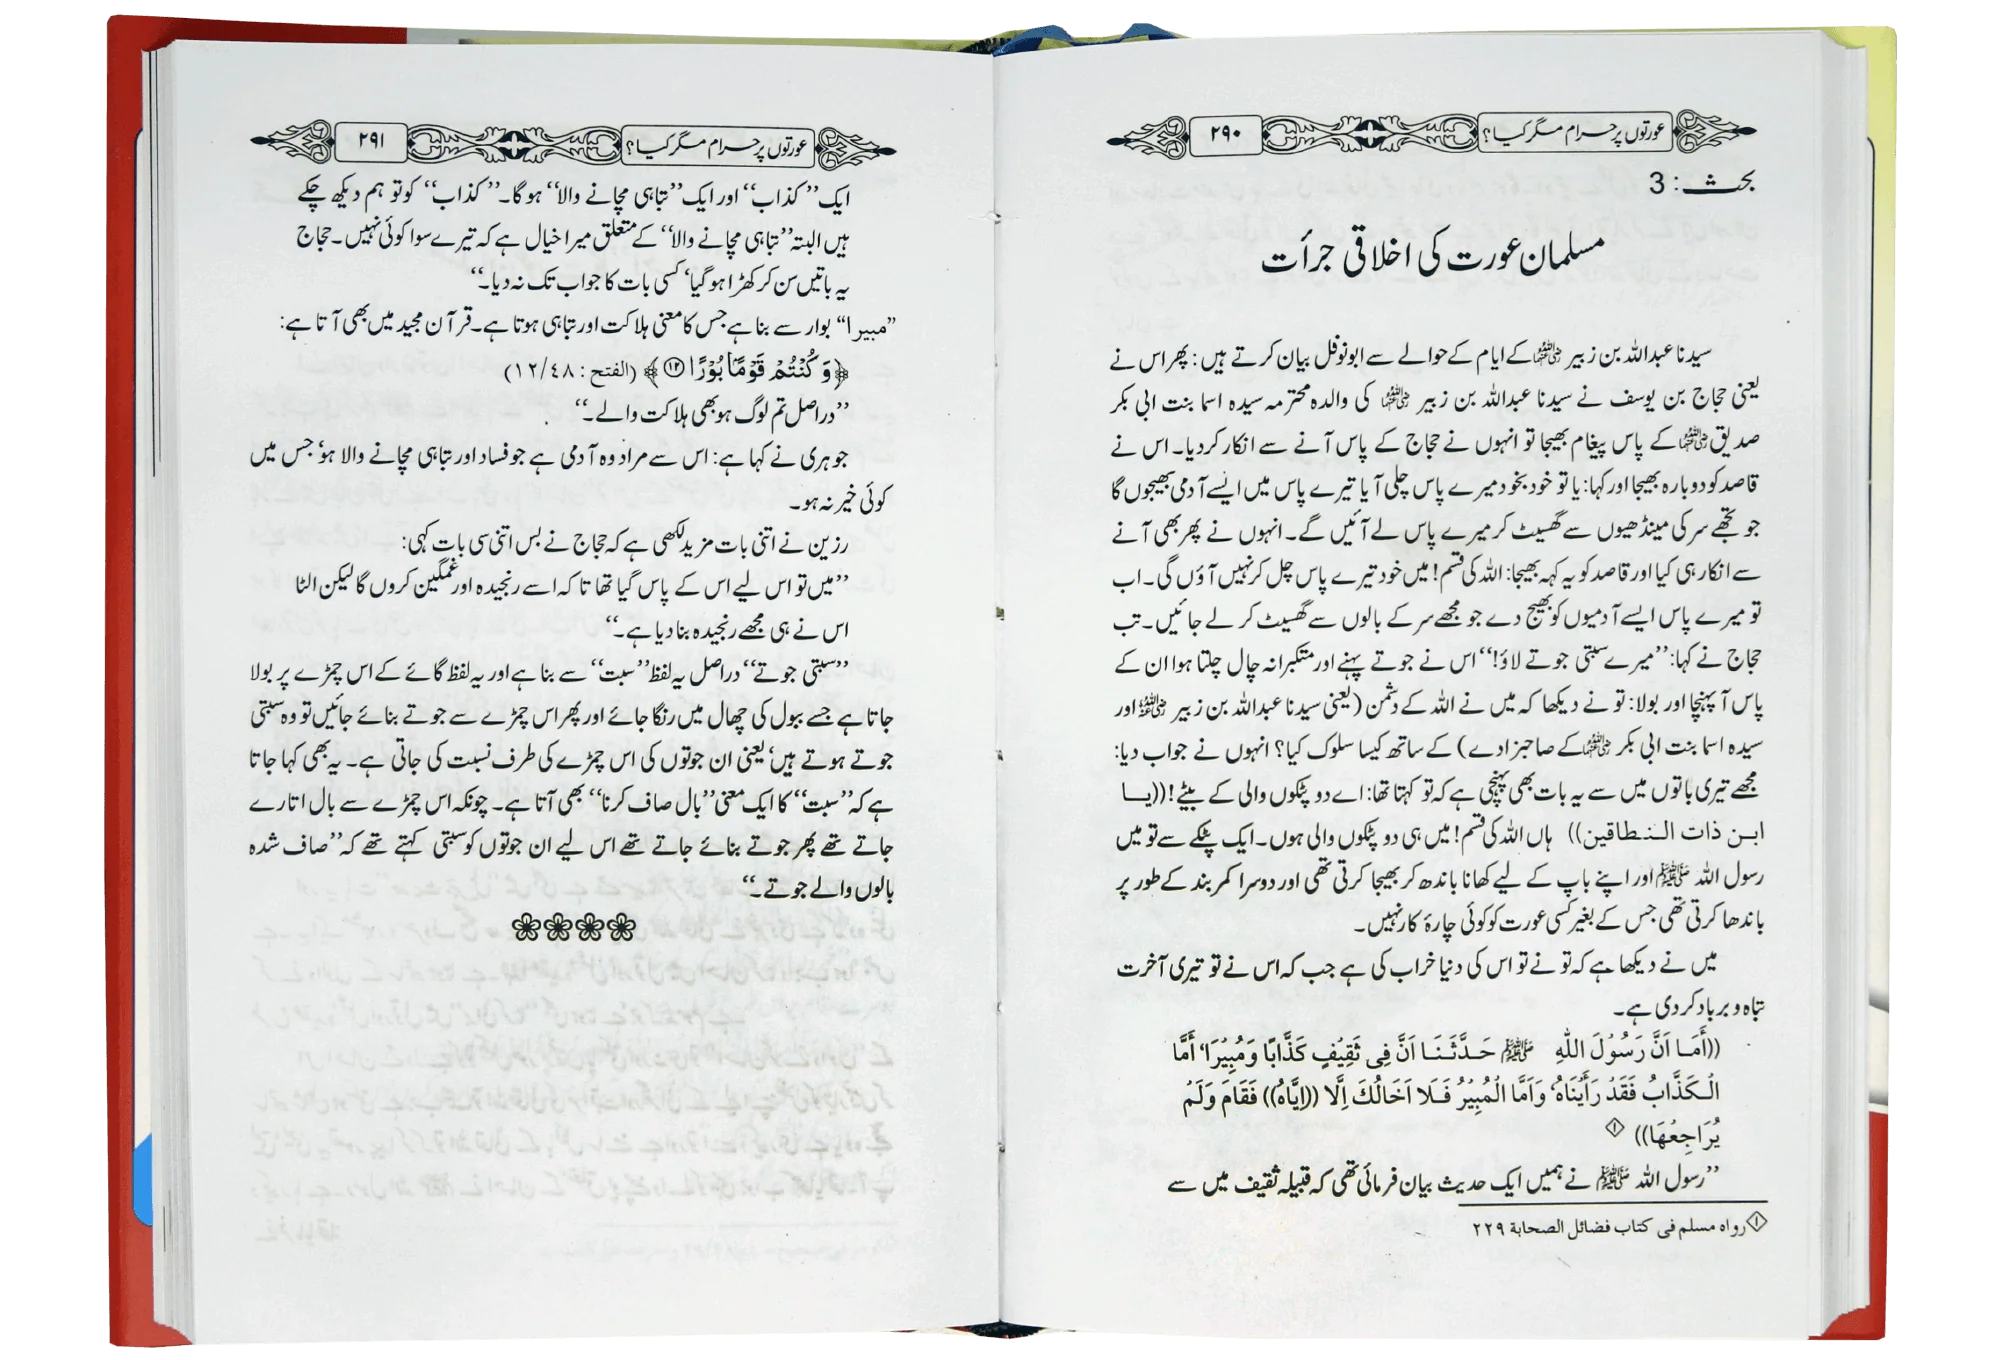 عورتوں پر حرام مگر کیا؟ ۲۹۰
بحث : 3
مسلمان عورت کی اخلاقی جرأت
سیدنا عبداللہ بن زبیر رضی اللہ عنہما کے ایام کے حوالے سے ابونوفل بیان کرتے ہیں: پھر اس نے
یعنی حجاج بن یوسف نے سیدنا عبداللہ بن زبیر رضی اللہ عنہما کی والدہ محترمہ سیدہ اسما بنت ابی بکر
صدیق رضی اللہ عنہما کے پاس پیغام بھیجا تو انہوں نے حجاج کے پاس آنے سے انکار کردیا۔ اس نے
قاصد کو دوبارہ بھیجا اور کہا: یا تو خود بخود میرے پاس چلی آ یا تیرے پاس میں ایسے آدمی بھیجوں گا
جو تجھے سر کی مینڈھیوں سے گھسیٹ کر میرے پاس لے آئیں گے۔ انہوں نے پھر بھی آنے
سے انکار ہی کیا اور قاصد کو یہ کہہ بھیجا: اللہ کی قسم! میں خود تیرے پاس چل کر نہیں آؤں گی۔ اب
تو میرے پاس ایسے آدمیوں کو بھیج دے جو مجھے سر کے بالوں سے گھسیٹ کر لے جائیں۔ تب
حجاج نے کہا: ’’میرے سبتی جوتے لاؤ!‘‘ اس نے جوتے پہنے اور متکبرانہ چال چلتا ہوا ان کے
پاس آپہنچا اور بولا: تو نے دیکھا کہ میں نے اللہ کے دشمن (یعنی سیدنا عبداللہ بن زبیر رضی اللہ عنہما اور
سیدہ اسما بنت ابی بکر رضی اللہ عنہما کے صاحبزادے) کے ساتھ کیسا سلوک کیا؟ انہوں نے جواب دیا:
مجھے تیری باتوں میں سے یہ بات بھی پہنچی ہے کہ تو کہتا تھا: اے دو پٹکوں والی کے بیٹے! ((یا
ابن ذات النطاقین)) ہاں اللہ کی قسم! میں ہی دو پٹکوں والی ہوں۔ ایک پٹکے سے تو میں
رسول اللہ ﷺ اور اپنے باپ کے لیے کھانا باندھ کر بھیجا کرتی تھی اور دوسرا کمر بند کے طور پر
باندھا کرتی تھی جس کے بغیر کسی عورت کو کوئی چارۂ کار نہیں۔
میں نے دیکھا ہے کہ تو نے تو اس کی دنیا خراب کی ہے جب کہ اس نے تو تیری آخرت
تباہ و برباد کردی ہے۔
((أَمَا اَنَّ رَسُوْلَ اللّٰهِ ﷺ حَدَّثَنَا اَنَّ فِی ثَقِیْفٍ کَذَّابًا وَمُبِیْرَا، أَمَّا
الْکَذَّابُ فَقَدْ رَأَیْنَاهُ، وَاَمَّا الْمُبِیْرُ فَلَا اَخَالُكَ اِلَّا ((اِیَّاهُ)) فَقَامَ وَلَمْ
یُرَاجِعْهَا)) ۱
’’رسول اللہ ﷺ نے ہمیں ایک حدیث بیان فرمائی تھی کہ قبیلہ ثقیف میں سے
۱ رواہ مسلم فی کتاب فضائل الصحابة ۲۲۹
عورتوں پر حرام مگر کیا؟ ۲۹۱
ایک ’’کذاب‘‘ اور ایک ’’تباہی مچانے والا‘‘ ہوگا۔ ’’کذاب‘‘ کو تو ہم دیکھ چکے
ہیں البتہ ’’تباہی مچانے والا‘‘ کے متعلق میرا خیال ہے کہ تیرے سوا کوئی نہیں۔ حجاج
یہ باتیں سن کر کھڑا ہوگیا، کسی بات کا جواب تک نہ دیا۔‘‘
’’مبیرا‘‘ بوار سے بنا ہے جس کا معنی ہلاکت اور تباہی ہوتا ہے۔ قرآن مجید میں بھی آتا ہے:
﴿وَكُنْتُمْ قَوْمًا بُوْرًا ۱۲﴾ (الفتح: ۱۲/۴۸)
’’دراصل تم لوگ ہو بھی ہلاکت والے۔‘‘
جوہری نے کہا ہے: اس سے مراد وہ آدمی ہے جو فساد اور تباہی مچانے والا ہو، جس میں
کوئی خیر نہ ہو۔
رزین نے اتنی بات مزید لکھی ہے کہ حجاج نے بس اتنی سی بات کہی:
’’میں تو اس لیے اس کے پاس گیا تھا تاکہ اسے رنجیدہ اور غمگین کروں گا لیکن الٹا
اس نے ہی مجھے رنجیدہ بنا دیا ہے۔‘‘
’’سبتی جوتے‘‘ دراصل یہ لفظ ’’سبت‘‘ سے بنا ہے اور یہ لفظ گائے کے اس چمڑے پر بولا
جاتا ہے جسے ببول کی چھال میں رنگا جائے اور پھر اس چمڑے سے جوتے بنائے جائیں تو وہ سبتی
جوتے ہوتے ہیں، یعنی ان جوتوں کی اس چمڑے کی طرف نسبت کی جاتی ہے۔ یہ بھی کہا جاتا
ہے کہ ’’سبت‘‘ کا ایک معنی ’’بال صاف کرنا‘‘ بھی آتا ہے۔ چونکہ اس چمڑے سے بال اتارے
جاتے تھے پھر جوتے بنائے جاتے تھے اس لیے ان جوتوں کو سبتی کہتے تھے کہ ’’صاف شدہ
بالوں والے جوتے۔‘‘